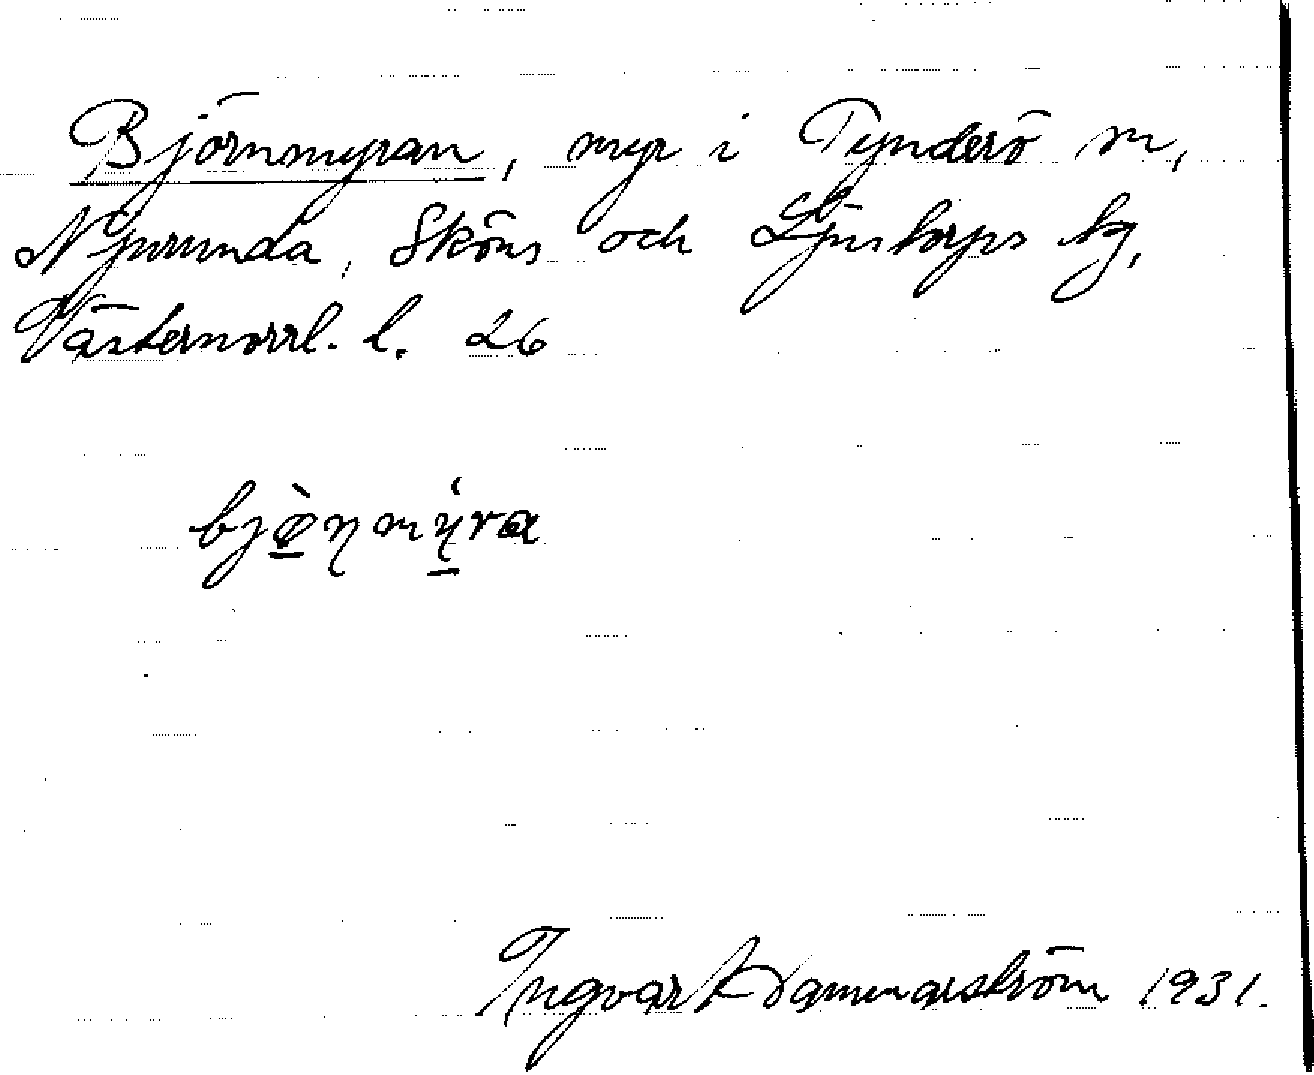 Björnmyran, myr i Tynderö sn,
Njurunda, Sköns och Ljustorps tg,
Västernorrl. l. 26
bjø̀ṇmýra
Ingvar Hammarström 1931.